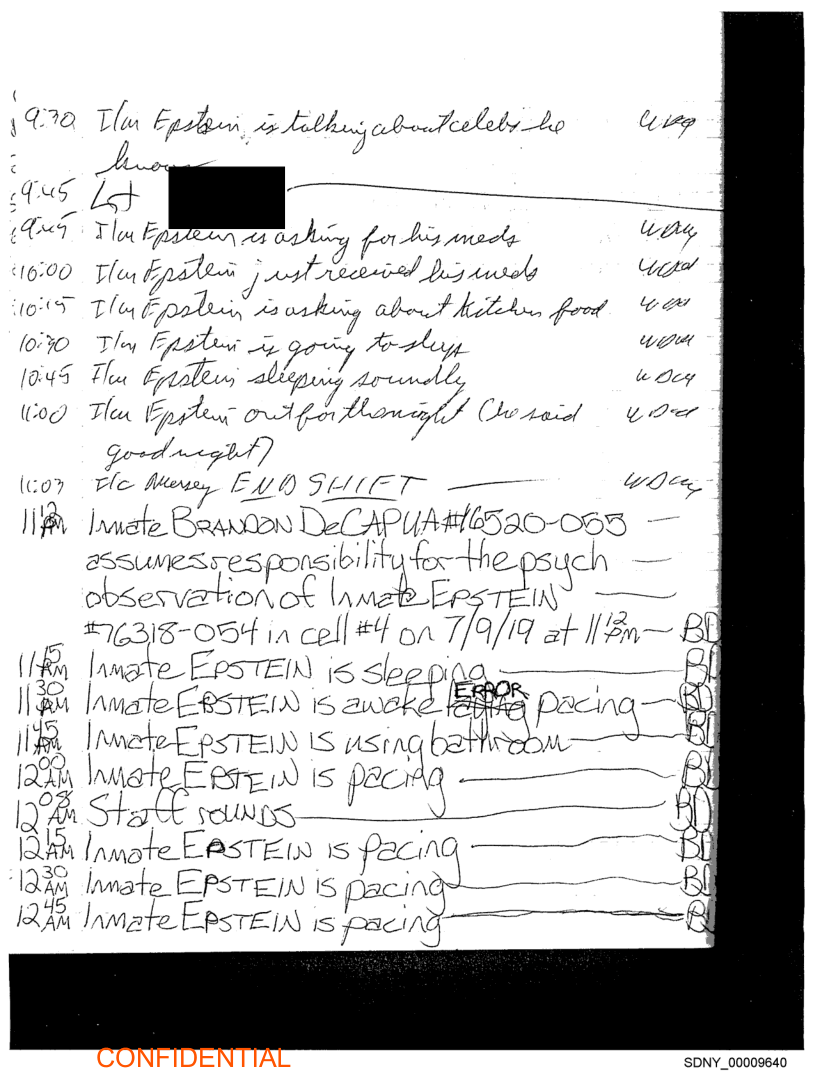 9:30 I/m Epstein is talking about celebs he
knows
9:45 Lt
9:45 I/m Epstein is asking for his meds
10:00 I/m Epstein just received his meds
10:15 I/m Epstein is asking about Kitchen food
10:30 I/m Epstein is going to sleep
10:45 I/m Epstein sleeping soundly
11:00 I/m Epstein out for the night (he said
good night)
11:03 I/C END SHIFT
11 12 PM Inmate BRANDON DeCAPUA #16520-055
assumes responsibility for the psych
observation of Inmate EPSTEIN
#76318-054 in cell #4 on 7/9/19 at 11 12 PM BD
11 15 PM Inmate EPSTEIN is sleeping BD
11 30 PM Inmate EPSTEIN is awake ERROR pacing BD
11 45 PM Inmate EPSTEIN is using bathroom BD
12 00 AM Inmate EPSTEIN is pacing BD
12 08 AM Staff rounds BD
12 15 AM Inmate EPSTEIN is pacing BD
12 30 AM Inmate EPSTEIN is pacing BD
12 45 AM Inmate EPSTEIN is pacing
CONFIDENTIAL
SDNY_00009640